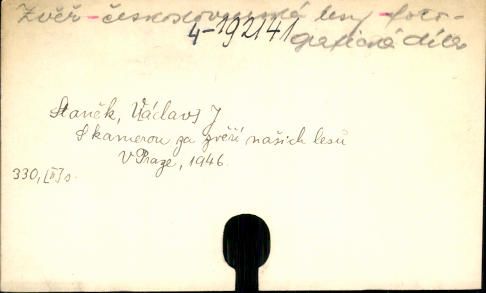 Zvěř - československé lesy - foto-
4-192141
grafická díla
Staněk, Václav J
S kamerou za zvěří našich lesů
V Praze, 1946.
330, [II] s.